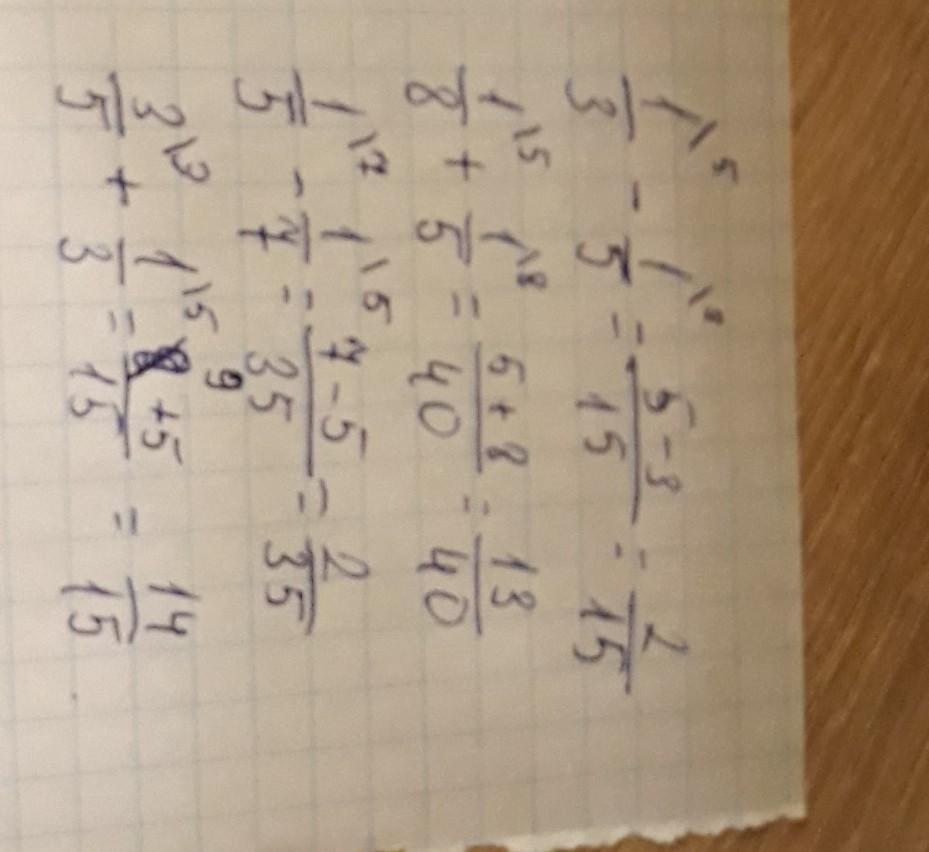 1/3\5 - 1/5\3 = 5-3/15 = 2/15
1/8\5 + 1/5\8 = 5+8/40 = 13/40
1/5\7 - 1/7\5 = 7-5/35 = 2/35
3/5\3 + 1/3\5 = 9+5/15 = 14/15